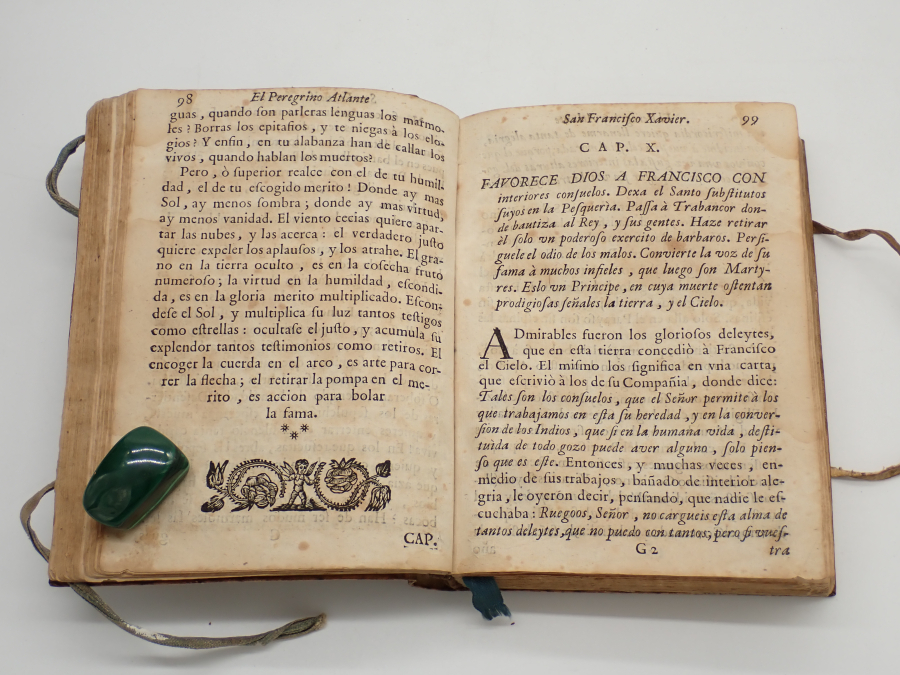 98 El Peregrino Atlante
guas, quando son parleras lenguas los marmo-
les? Borras los epitafios, y te niegas à los elo-
gios? Y enfin, en tu alabanza han de callar los
vivos, quando hablan los muertos?
Pero, ò superior realce con el de tu humil-
dad, el de tu escogido merito! Donde ay mas
Sol, ay menos sombra; donde ay mas virtud,
ay menos vanidad. El viento cecias quiere apar-
tar las nubes, y las acerca: el verdadero justo
quiere expeler los aplausos, y los atrahe. El gra-
no en la tierra oculto, es en la cosecha fruto
numeroso; la virtud en la humildad, escondi-
da, es en la gloria merito multiplicado. Escon-
dese el Sol, y multiplica su luz tantos testigos
como estrellas: ocultase el justo, y acumula su
explendor tantos testimonios como retiros. El
encoger la cuerda en el arco, es arte para cor-
rer la flecha; el retirar la pompa en el me-
rito, es accion para bolar
la fama.
CAP.
San Francisco Xavier. 99
CAP. X.
FAVORECE DIOS A FRANCISCO CON
interiores consuelos. Dexa el Santo substitutos
suyos en la Pesqueria. Passa à Trabancor don-
de bautiza al Rey, y sus gentes. Haze retirar
èl solo vn poderoso exercito de barbaros. Persi-
guele el odio de los malos. Convierte la voz de su
fama à muchos infieles, que luego son Marty-
res. Eslo vn Principe, en cuya muerte ostentan
prodigiosas señales la tierra, y el Cielo.
ADmirables fueron los gloriosos deleytes,
que en esta tierra concediò à Francisco
el Cielo. El mismo los significa en vna carta,
que escriviò à los de su Compañia, donde dice:
Tales son los consuelos, que el Señor permite à los
que trabajamos en esta su heredad, y en la conver-
sion de los Indios, que si en la humana vida, desti-
tuìda de todo gozo puede aver alguno, solo pien-
so que es este. Entonces, y muchas veces, en-
medio de sus trabajos, bañado de interior ale-
gria, le oyeron decir, pensando, que nadie le es-
cuchaba: Ruegoos, Señor, no cargueis esta alma de
tantos deleytes, que no puedo con tantos; pero si vues-
G 2 tra